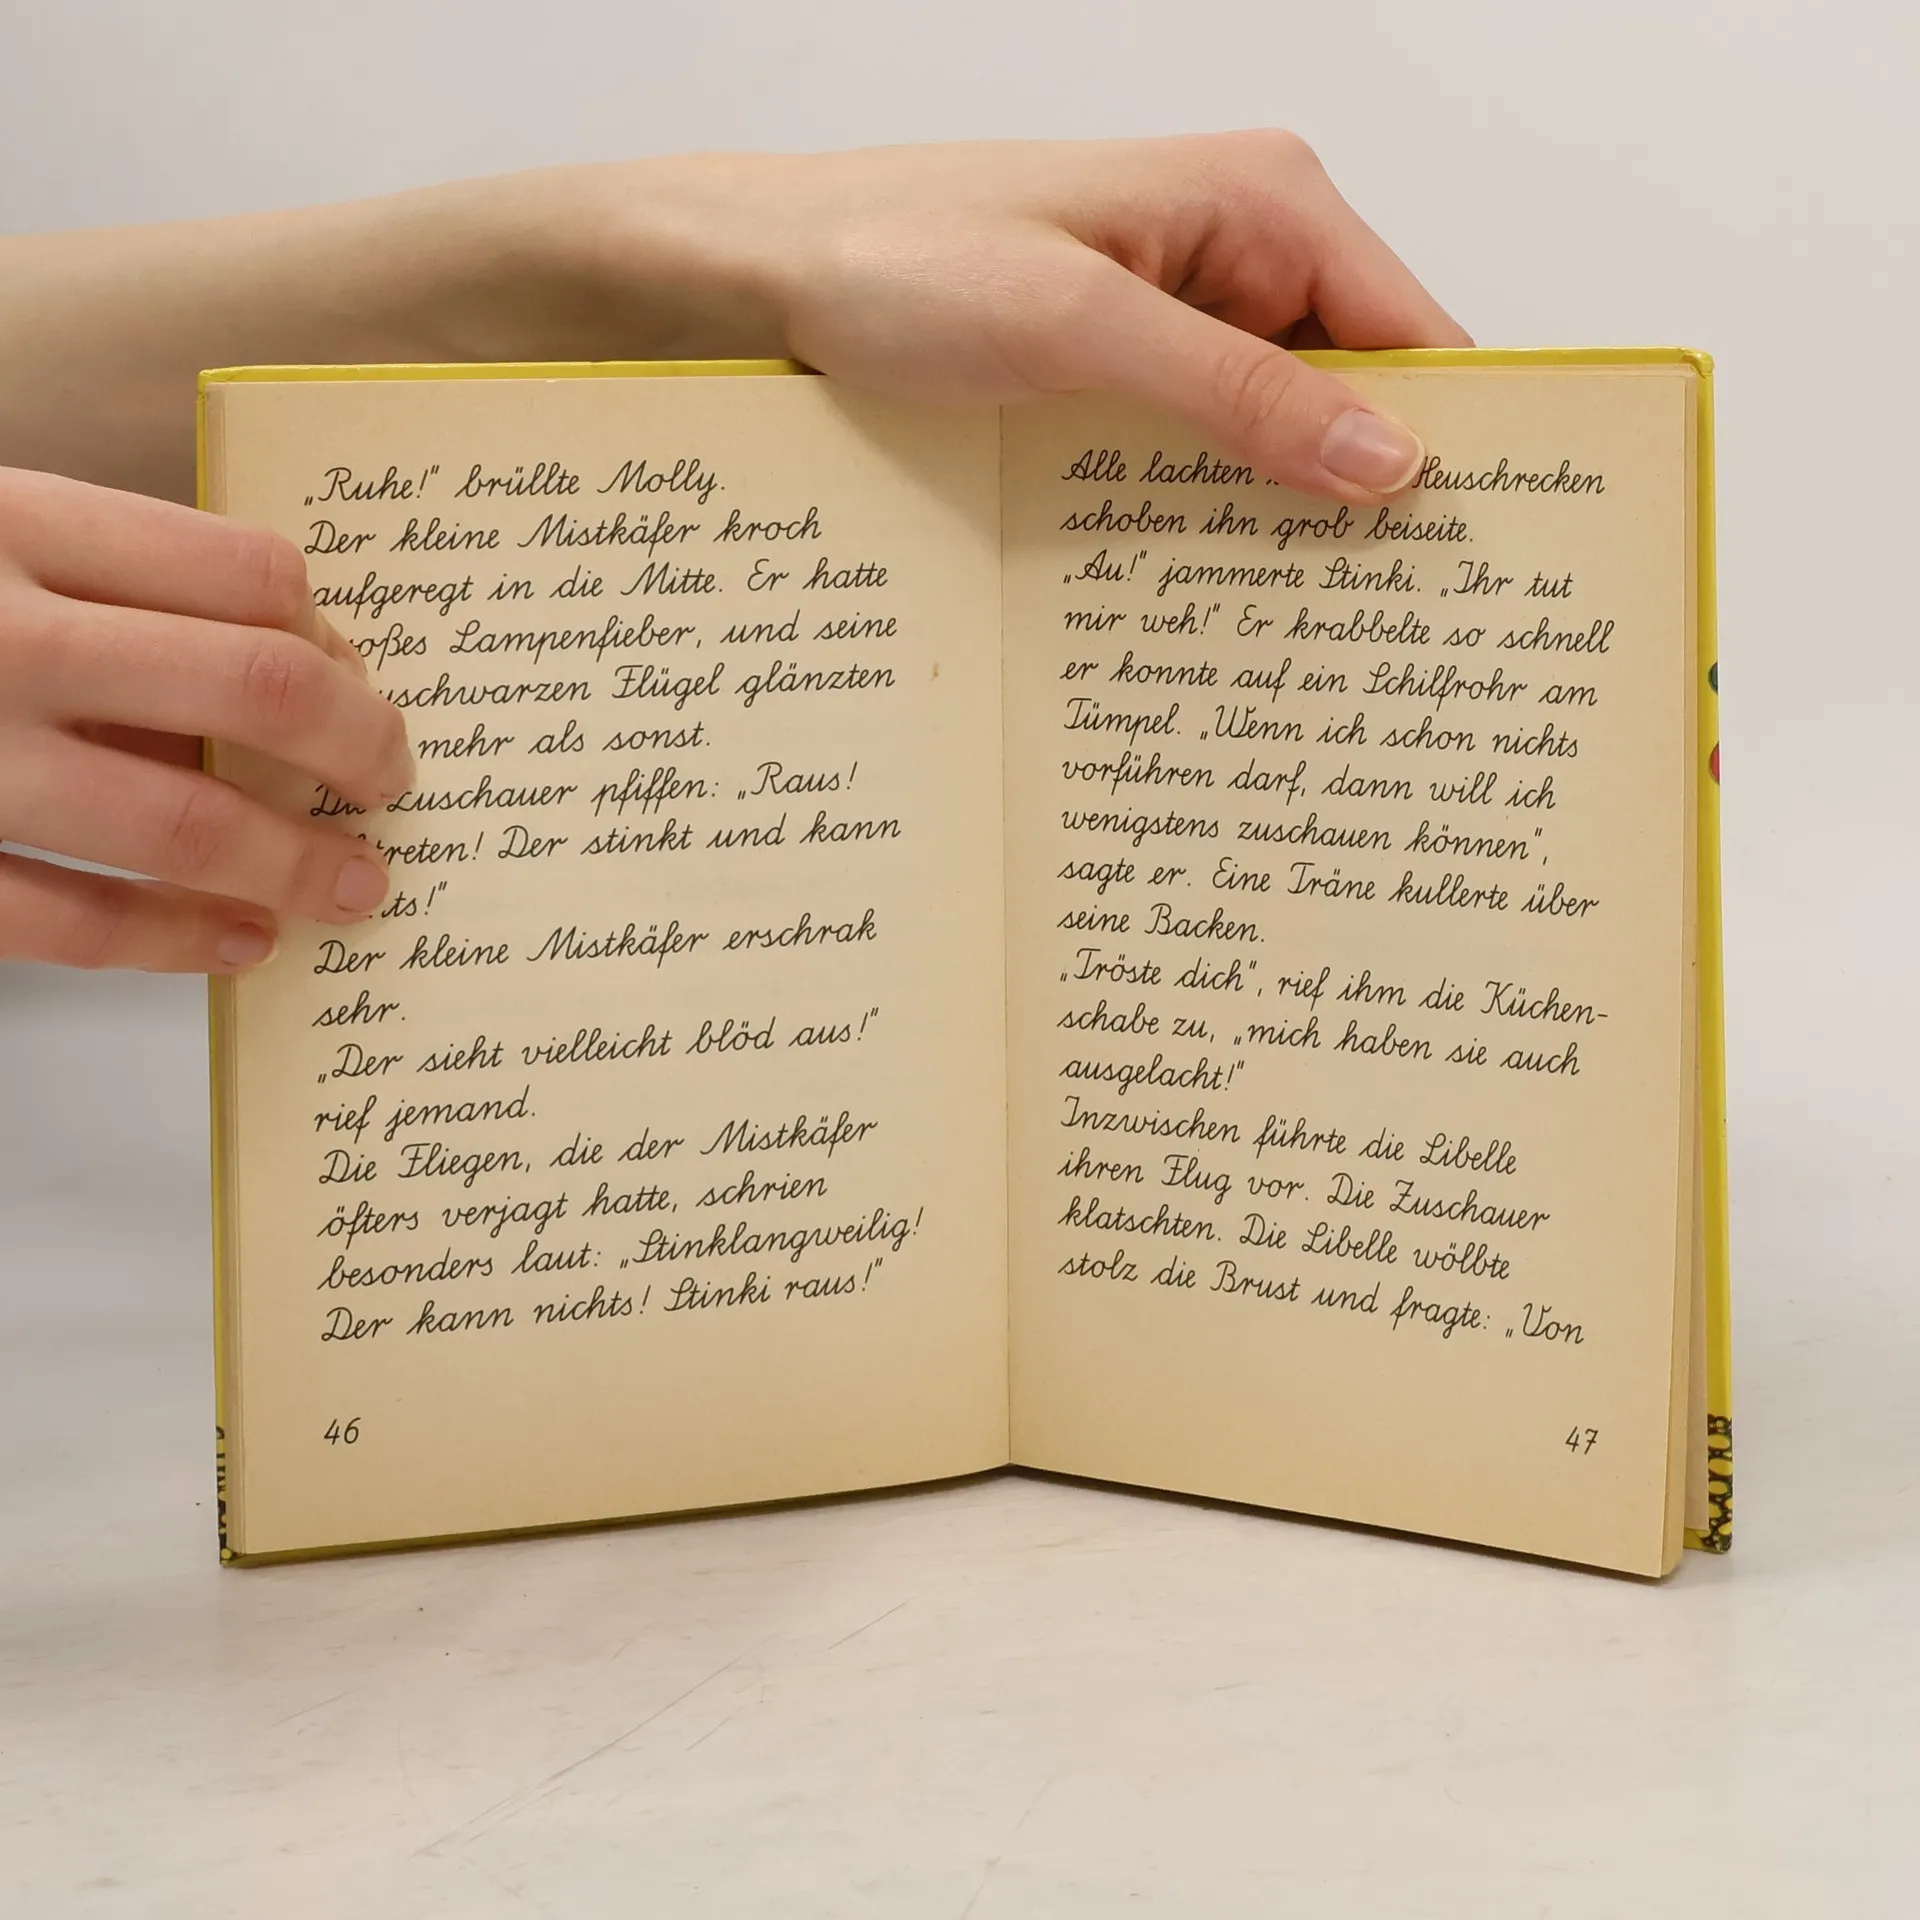 „Ruhe!" brüllte Molly.
Der kleine Mistkäfer kroch
aufgeregt in die Mitte. Er hatte
Lampenfieber, und seine
Flügel glänzten
mehr als sonst.
Zuschauer pfiffen: „Raus!
Der stinkt und kann
Der kleine Mistkäfer erschrak
sehr.
„Der sieht vielleicht blöd aus!"
rief jemand.
Die Fliegen, die der Mistkäfer
öfters verjagt hatte, schrien
besonders laut: „Stinklangweilig!
Der kann nichts! Stinki raus!"
46
Alle lachten Heuschrecken
schoben ihn grob beiseite.
„Au!" jammerte Stinki. „Ihr tut
mir weh!" Er krabbelte so schnell
er konnte auf ein Schilfrohr am
Tümpel. „Wenn ich schon nichts
vorführen darf, dann will ich
wenigstens zuschauen können",
sagte er. Eine Träne kullerte über
seine Backen.
„Tröste dich", rief ihm die Küchen-
schabe zu, „mich haben sie auch
ausgelacht!"
Inzwischen führte die Libelle
ihren Flug vor. Die Zuschauer
klatschten. Die Libelle wölbte
stolz die Brust und fragte: „Von
47